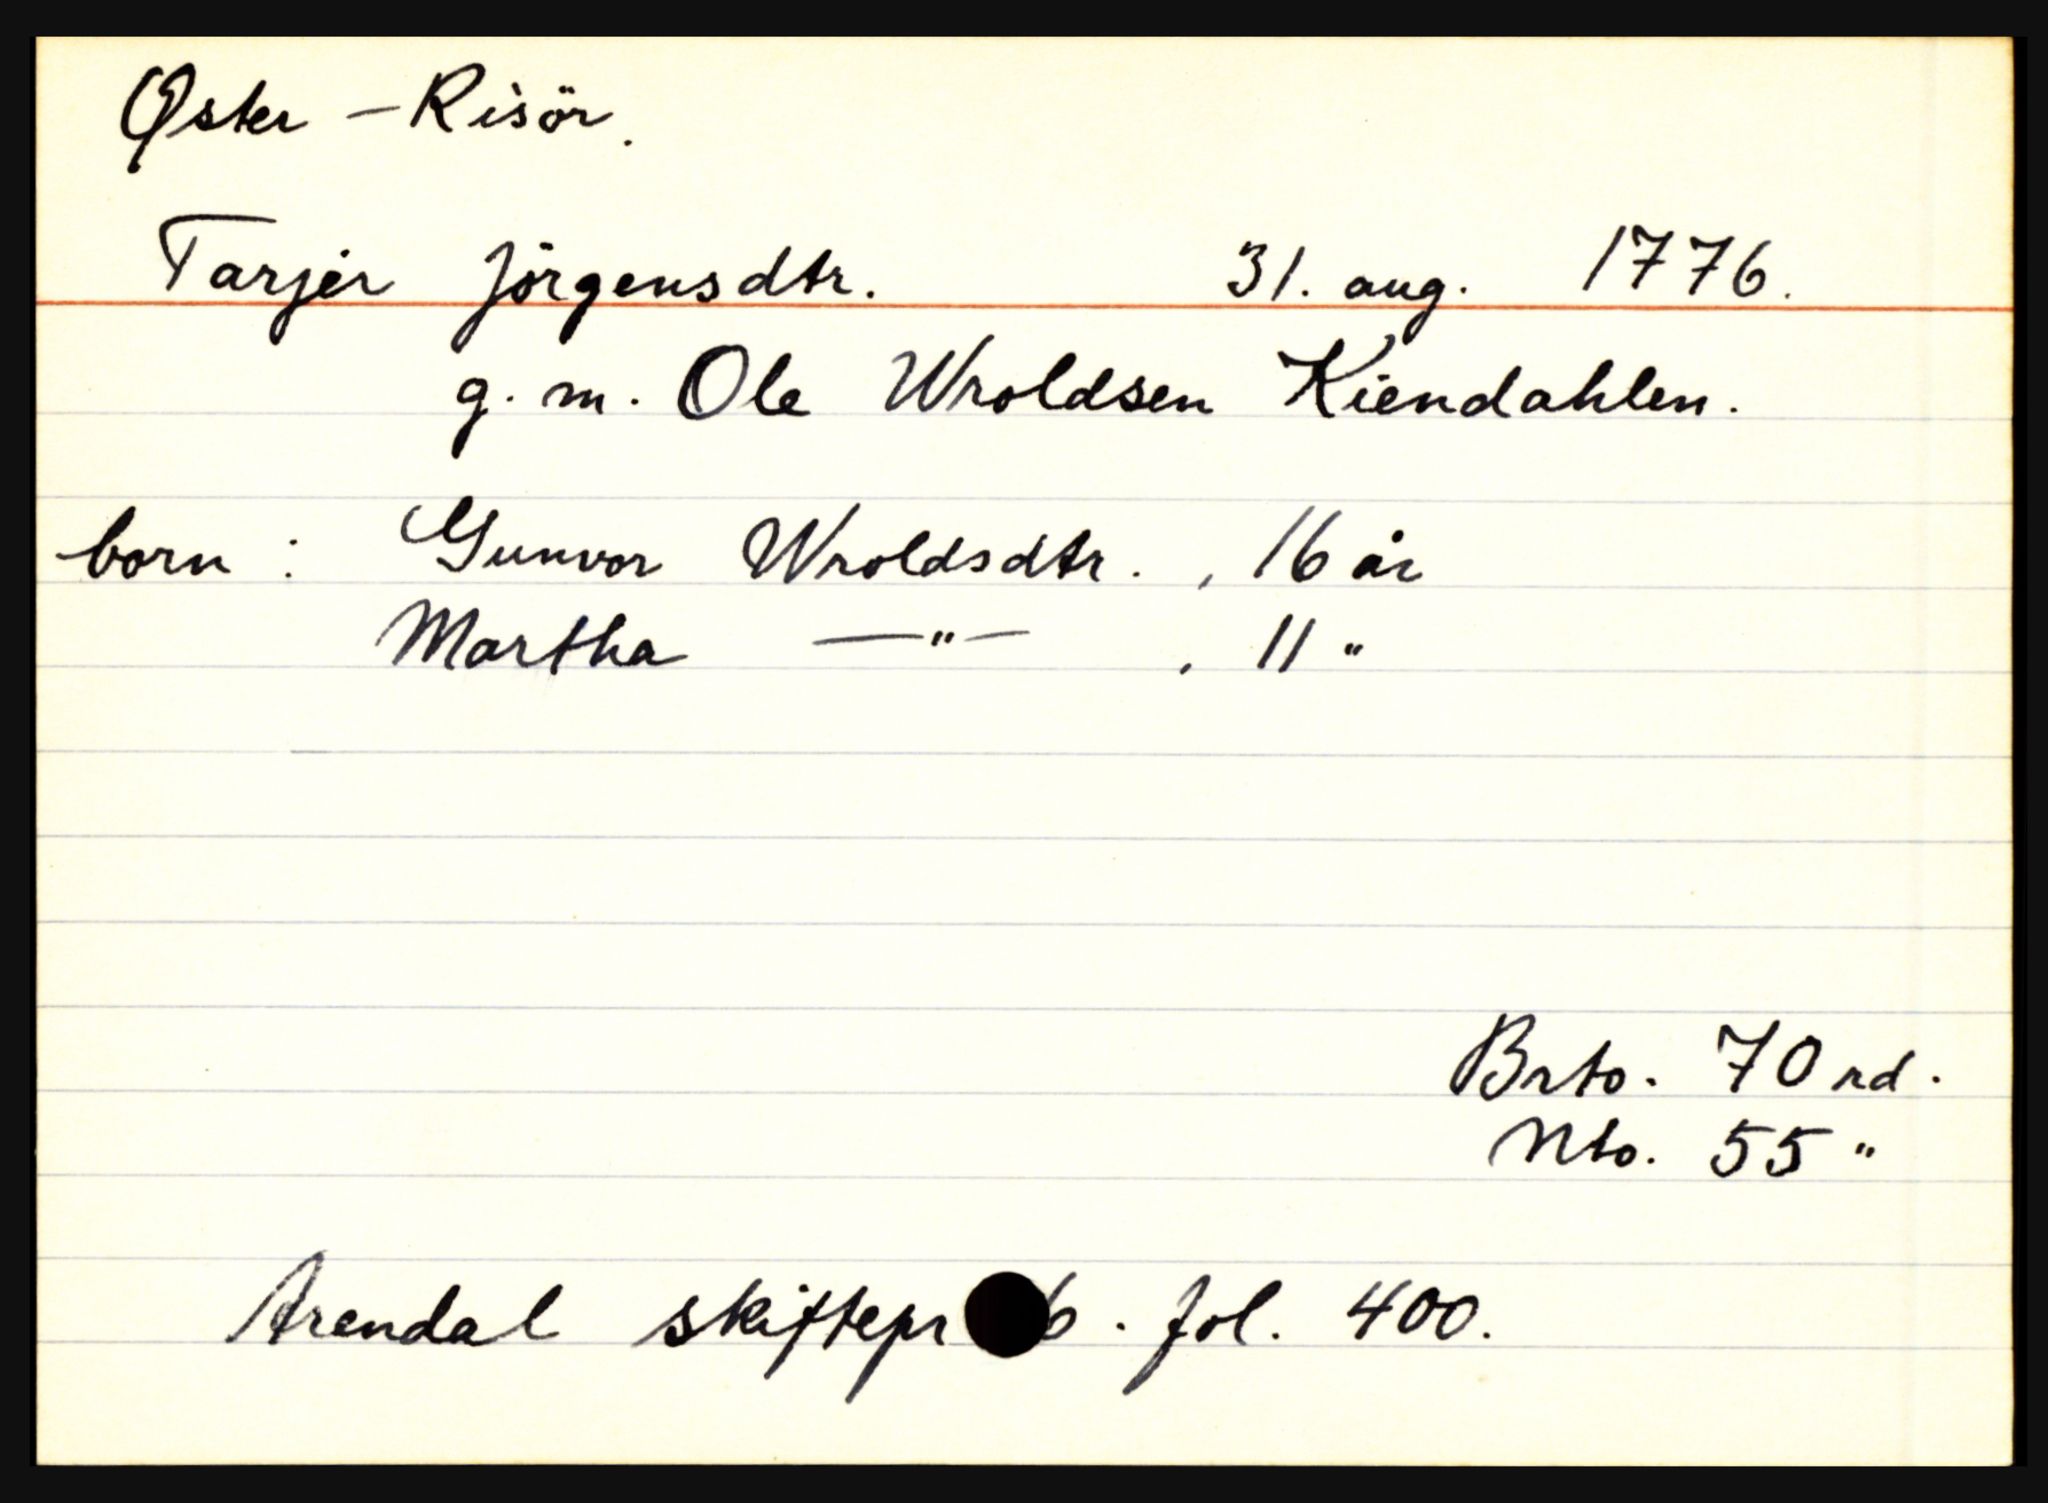 Øster - Risör.
Tarjer Jörgensdtr. 31. aug. 1776.
g. m. Ole Wroldsen Kiendahlen.
born : Gunvor Wroldsdtr. , 16 år
Martha —"— , 11 "
Brto. 70 rd.
Nto. 55 "
Arendal skiftepr 6. fol. 400.